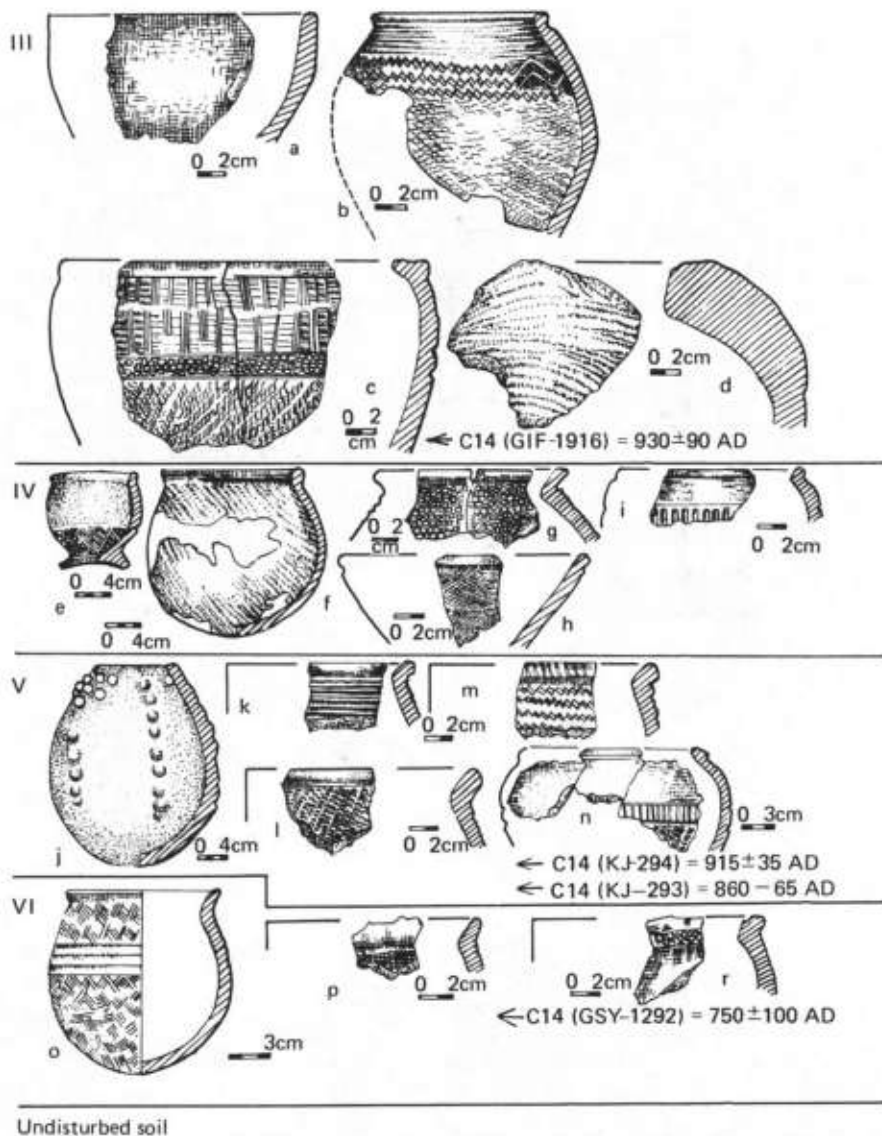 III
0 2cm
a
0 2cm
b
c
0 2
cm
0 2cm
d
C14 (GIF-1916) = 930±90 AD
IV
0 4cm
e
0 4cm
f
0 2
cm
g
i
0 2cm
0 2cm
h
V
k
m
0 2cm
j
0 4cm
l
0 2cm
n
0 3cm
C14 (KJ-294) = 915±35 AD
C14 (KJ-293) = 860-65 AD
VI
o
3cm
p
0 2cm
0 2cm
r
C14 (GSY-1292) = 750±100 AD
Undisturbed soil